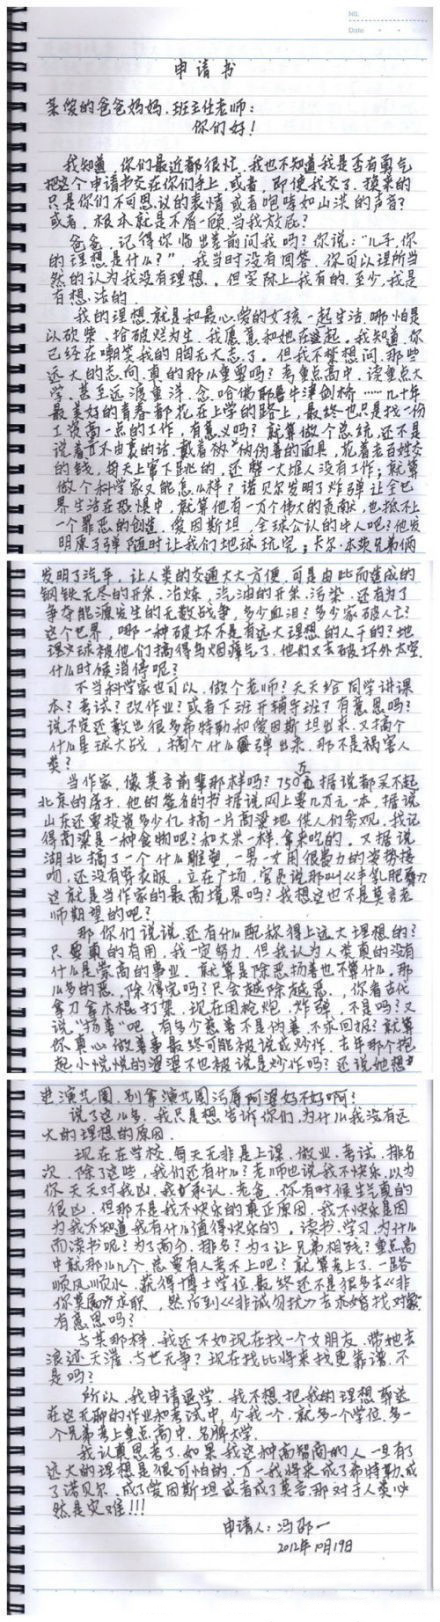 NO.
Date
申请书
亲爱的爸爸妈妈、班主任老师:
你们好!
我知道,你们最近都很忙,我也不知道我是否有勇气
把这个申请书交在你们手上,或者,即使我交了,换来的
只是你们不可思议的表情或者咆哮如山洪的声音?
或者,根本就是不屑一顾,当我放屁?
爸爸,记得你临出差前问我吗?你说:“儿子,你
的理想是什么?”,我当时没有回答,你可以理所当
然的认为我没有理想,但实际上我有的,至少,我是
有想法的。
我的理想就是和最心爱的女孩一起生活,哪怕是
以砍柴、捡破烂为生,我愿意和她在一起。我知道,你
已经在嘲笑我的胸无大志了。但我不禁想问,那些
远大的志向,真的那么重要吗?考重点高中,读重点大
学,甚至远渡重洋,念哈佛耶鲁牛津剑桥……几十年
最美好的青春都花在上学的路上,最终也只是找一份
工资高一点的工作,有意义吗?就算做个总统,还不是
说着言不由衷的话,戴着伪善的面具,花着老百姓交
的钱,每天上蹿下跳的,还整一大堆人没有工作;就算
做个科学家又能怎么样?诺贝尔发明了炸弹让全世
界生活在恐惧中,就算他有一万个伟大的贡献,也抵不上
一个罪恶的创造,爱因斯坦,全球公认的牛人吧?他发
明原子弹随时让我们地球玩完;卡尔·本茨兄弟俩
发明了汽车,让人类的交通大大方便,可是由此而造成的
钢铁无尽的开采、冶炼,汽油的开采、污染,还有为了
争夺能源发生的无数战争,多少血泪?多少家破人亡?
这个世界,哪一种破坏不是有远大理想的人干的?地
球被他们搞得乌烟瘴气了,他们又去破坏外太空,
什么时候消停呢?
不当科学家也可以,做个老师?天天给同学讲课
本?考试?改作业?或者下班开辅导班了有意思吗?
说不定还教出很多希特勒和爱因斯坦出来,又搞个
什么星球大战,搞个什么弹出来,那不是祸害人
类?
当作家,像莫言前辈那样吗?750万,据说都买不起
北京的房子,他的签名的书据说网上要几万元一本,据说
山东还要投资多少亿搞一片高粱地,供人们参观,我记
得高粱是一种食物吧?和大米一样,拿来吃的。又据说
湖北搞了一个什么雕塑,一男一女用很费力的姿势接
吻,还没有穿衣服,立在广场,官员说那叫《丰乳肥臀》
这就是当作家的最高境界吗?我想这也不是莫言老
师期望的吧?
那你们说说,还有什么配称得上远大理想的?
只要真的有用,我一定努力,但我认为人类真的没有
什么是崇高的事业,就算是除恶扬善也不算什么,那
么多的恶,除得完吗?只会越除越恶,你看古代
拿刀拿木棍打架,现在用枪炮、炸弹,不是吗?又
说“扬善”吧,有多少慈善不是伪善,不求回报?就算
你真心做善事最终可能被说成炒作,去年那个抱
起小悦悦的婆婆不也被说是炒作吗?还说她想
进演艺圈,别拿演艺圈污辱阿婆好不好啊?
说了这么多,我只是想告诉你们,为什么我没有远
大的理想的原因。
现在在学校,每天无非是上课、做业、考试、排名
次,除了这些,我们还有什么?老师也说我不快乐,以为
你天天对我凶,我承认,老爸,你有时候生气真的
很凶,但那不是我不快乐的真正原因,我不快乐是因
为我不知道我有什么值得快乐的。读书、学习,为什么
而读书呢?为了高分,排名?为了让兄弟相残?重点高
中就那么几个,总要有人考不上吧?就算考上了,一路
顺风顺水,获得博士学位,最终还不是很多去《非
你莫属》求职,然后到《非诚勿扰》去求婚找对象?
有意思吗?
与其那样,我还不如现在找一个女朋友,带她去
浪迹天涯,与世无争?现在找比将来找更靠谱,不
是吗?
所以,我申请退学,我不想把我的理想葬送
在这无聊的作业和考试中,少我一个,就多一个学位,多一
个兄弟考上重点高中、名牌大学。
我认真思考了,如果我这种高智商的人一旦有了
远大的理想是很可怕的,万一我将来成了希特勒,成
了诺贝尔,成了爱因斯坦或者成了莫言,那对于人类必
然是灾难!!!
申请人:冯邵一
2012年10月19日